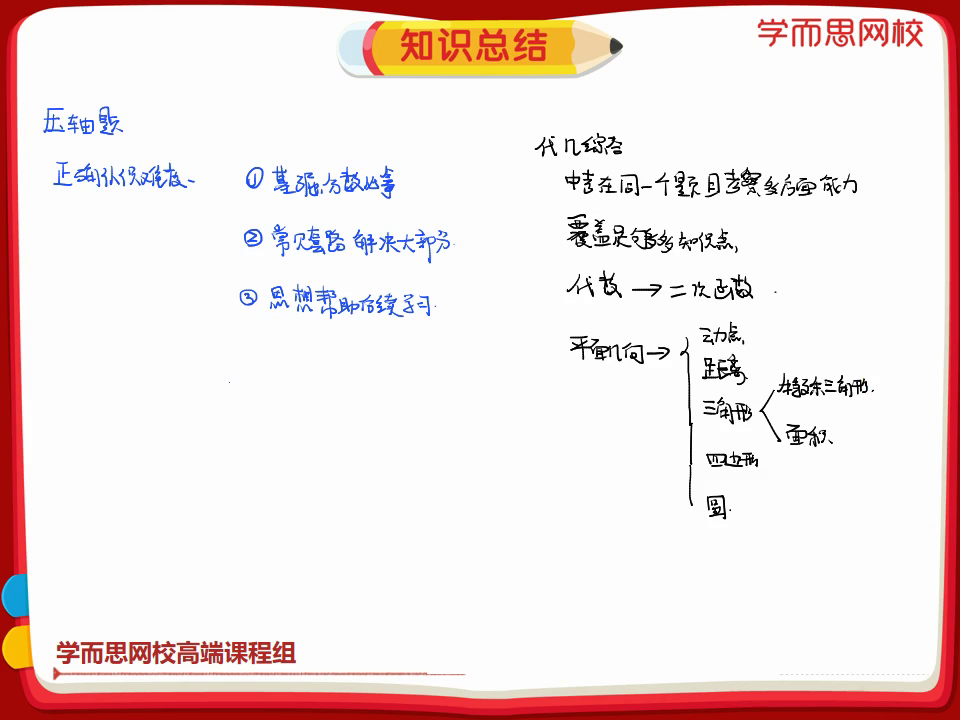 知识总结
学而思网校
压轴题
正确认识难度
① 基础分数必拿
② 常见套路 解决大部分
③ 思想帮助后续学习.
代几综合
中考在同一个题目考察多方面能力
覆盖足够多知识点,
代数 → 二次函数
平面几何 →
动点,
距离
三角形
特殊三角形.
面积、
四边形
圆.
学而思网校高端课程组